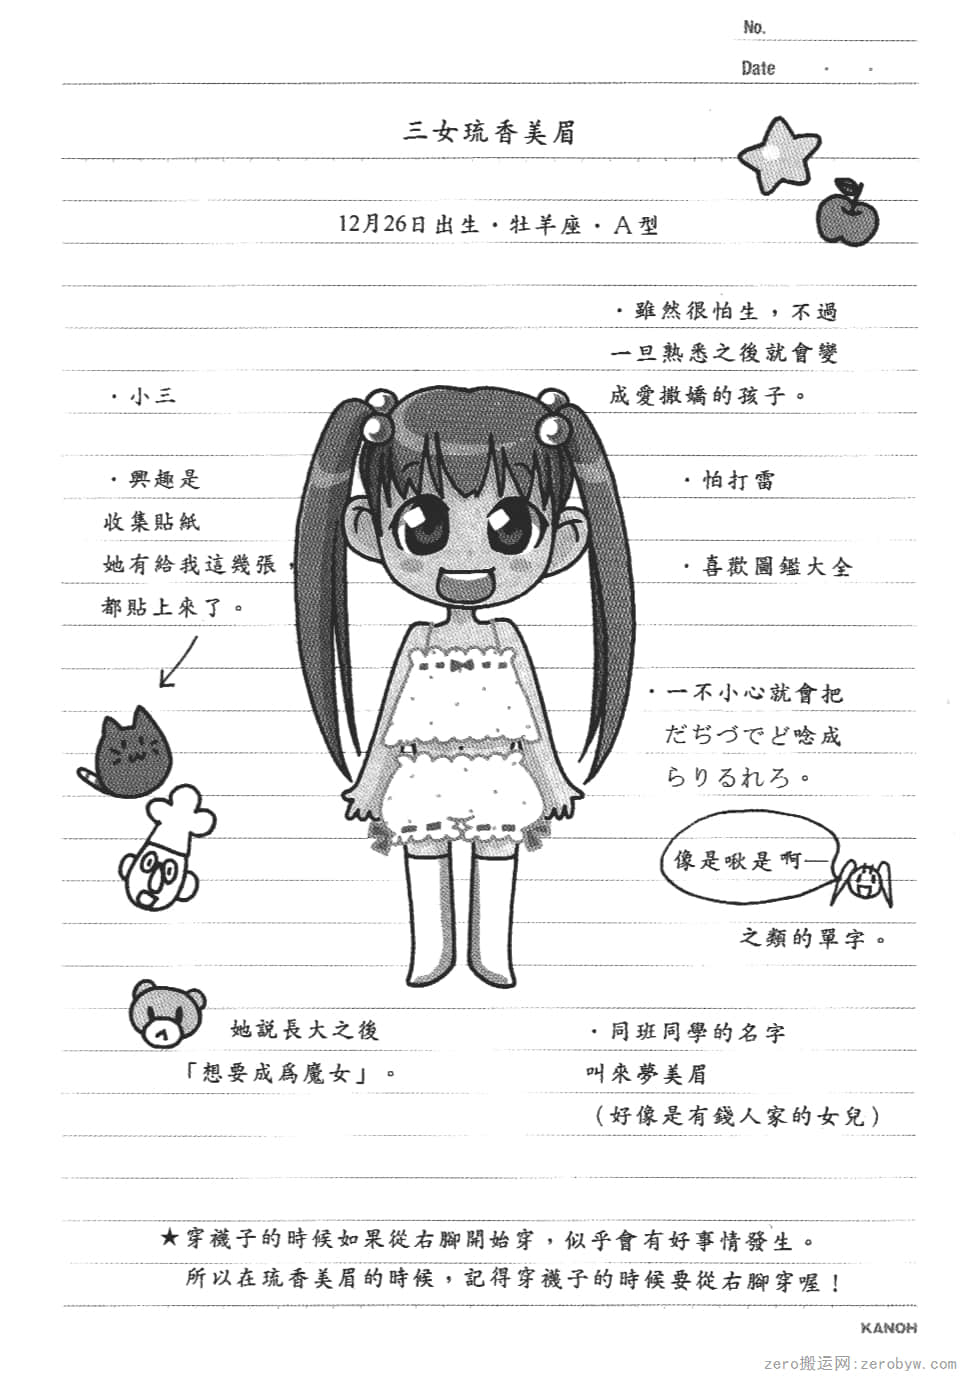 No.
Date ・ ・
三女琉香美眉
12月26日出生・牡羊座・A型
・雖然很怕生，不過
一旦熟悉之後就會變
成愛撒嬌的孩子。
・小三
・興趣是
收集貼紙
她有給我這幾張，
都貼上來了。
・怕打雷
・喜歡圖鑑大全
・一不小心就會把
だぢづでど唸成
らりるれろ。
像是啾是啊—
之類的單字。
她說長大之後
「想要成為魔女」。
・同班同學的名字
叫來夢美眉
（好像是有錢人家的女兒）
★穿襪子的時候如果從右腳開始穿，似乎會有好事情發生。
所以在琉香美眉的時候，記得穿襪子的時候要從右腳穿喔！
KANOH
zero搬运网:zerobyw.com